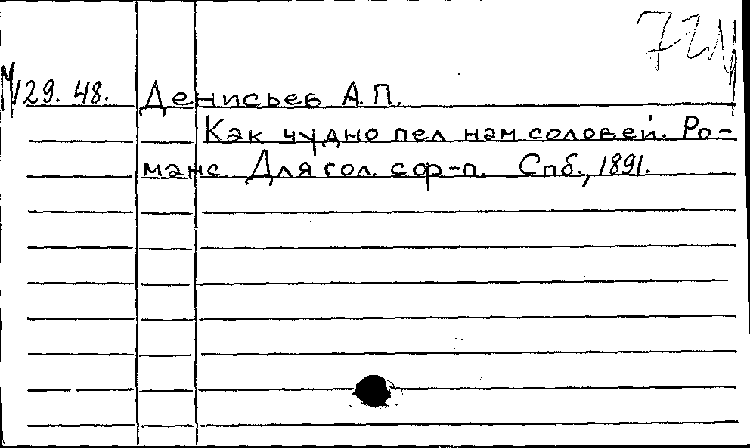 М29.48. Денисьев А.П.
Как чудно пел нам соловей. Ро-
манс. Для гол. с ф-п. Спб., 1891.